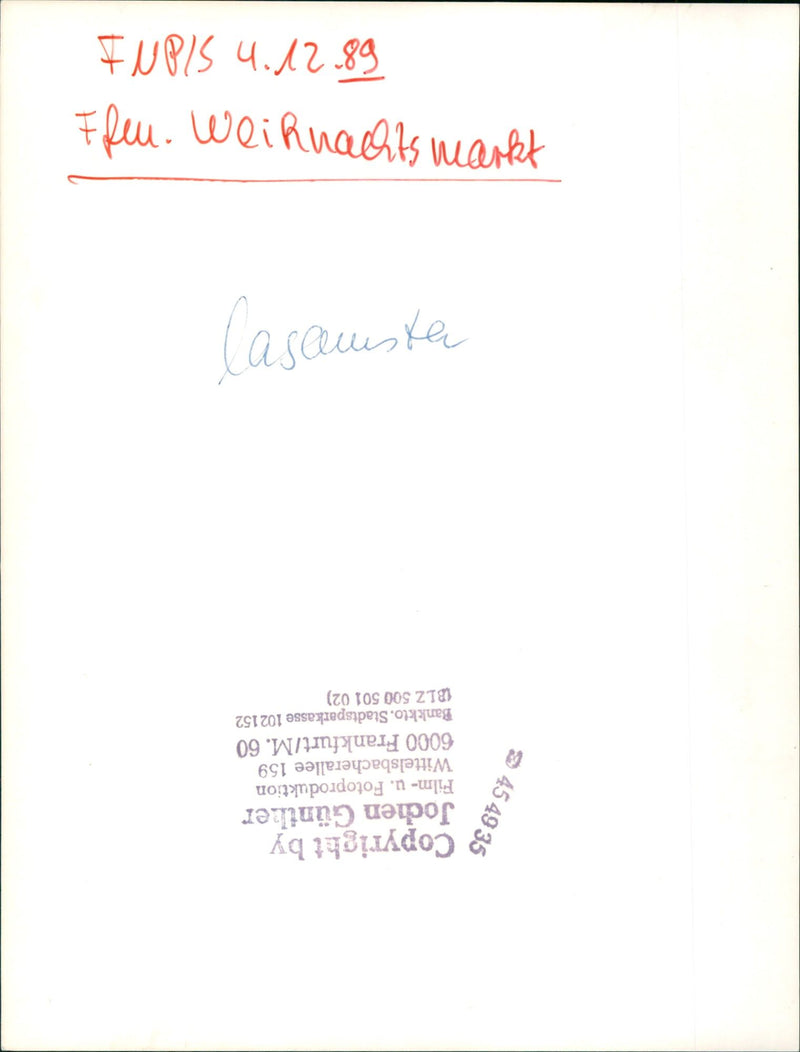 FNP/S 4.12.89
Ffm. Weihnachtsmarkt
Copyright by
Jochen Günther
Film- u. Fotoproduktion
Wittelsbacherallee 159
6000 Frankfurt/M. 60
Bankkto. Stadtsparkasse 102152
(BLZ 500 501 02)
☎ 454935